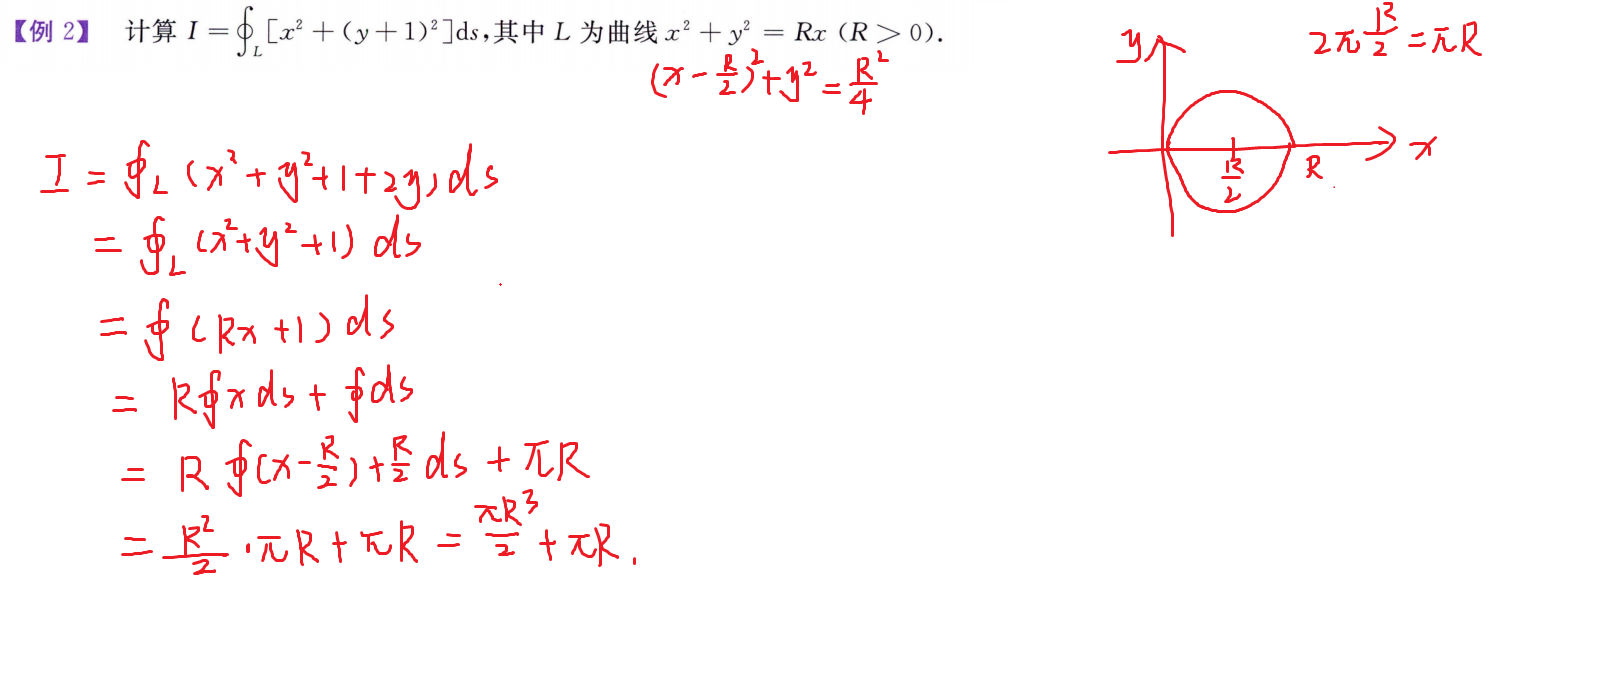 【例 2】 计算 I = ∮_L [x² + (y + 1)²]ds,其中 L 为曲线 x² + y² = Rx (R > 0).
(x - R/2)² + y² = R²/4
2π R/2 = πR
y
x
R/2
R
I = ∮_L (x² + y² + 1 + 2y) ds
= ∮_L (x² + y² + 1) ds
= ∮ (Rx + 1) ds
= R∮x ds + ∮ds
= R ∮(x - R/2) + R/2 ds + πR
= R²/2 · πR + πR = πR³/2 + πR.